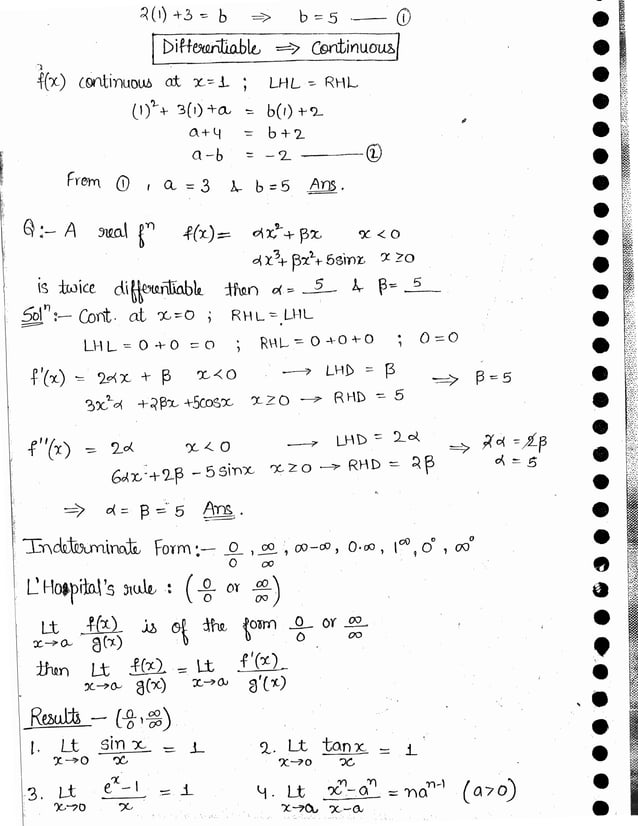 2(1) + 3 = b ⇒ b = 5 —— ①
Differentiable ⇒ Continuous
f(x) continuous at x=1 ; LHL = RHL
(1)² + 3(1) + a = b(1) + 2
a+4 = b+2
a-b = -2 —— ②
From ① , a = 3 & b = 5 Ans.
Q:- A real fⁿ f(x) = αx² + βx x < 0
αx³ + βx² + 5sinx x ≥ 0
is twice differentiable then α = 5 & β = 5
Solⁿ:- Cont. at x=0 ; RHL = LHL
LHL = 0+0 = 0 ; RHL = 0+0+0 ; 0=0
f'(x) = 2αx + β x<0 → LHD = β ⇒ β = 5
3x²α + 2βx + 5cosx x≥0 → RHD = 5
f''(x) = 2α x<0 → LHD = 2α ⇒ 2α = 2β
6αx + 2β - 5sinx x≥0 → RHD = 2β α = 5
⇒ α = β = 5 Ans.
Indeterminate Form:- 0/0 , ∞/∞ , ∞-∞, 0.∞, 1^∞, 0⁰, ∞⁰
L'Hospital's rule : (0/0 or ∞/∞)
Lt x→a f(x)/g(x) is of the form 0/0 or ∞/∞
then Lt x→a f(x)/g(x) = Lt x→a f'(x)/g'(x)
Results - (0/0, ∞/∞)
1. Lt x→0 sin x/x = 1 2. Lt x→0 tanx/x = 1
3. Lt x→0 (eˣ-1)/x = 1 4. Lt x→a (xⁿ-aⁿ)/(x-a) = naⁿ⁻¹ (a>0)